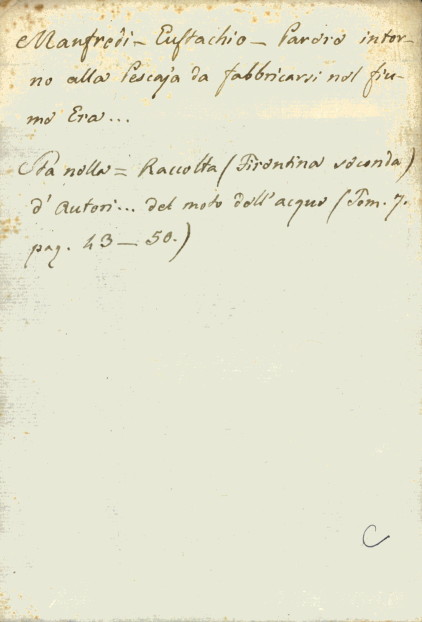 Manfredi - Eustachio - Parere intor-
no alla Pescaja da fabbricarsi nel fiu-
me Era...
Sta nella = Raccolta (Fiorentina seconda)
d'Autori... del moto dell'acque (Tom. 7.
pag. 43 - 50.)
C